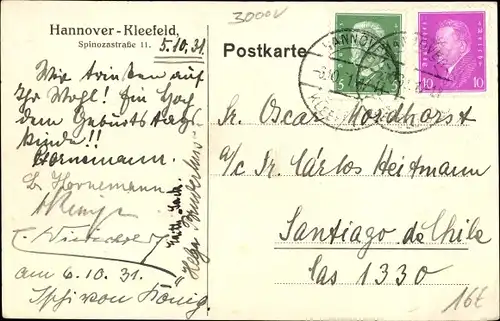 Hannover-Kleefeld,
Spinozastraße 11.
5.10.31.
Wir trinken auf
Ihr Wohl! Ein Hoch
dem Geburtstags
kinde!!
Hornemann.
Hornemann
am 6.10.31.
von König.
3000
Postkarte
HANNOVER
5
10
10
Sr. Oscar Nordhorst
a/c Sr. Carlos Heitmann
Santiago de Chile
Cas 1330
16€